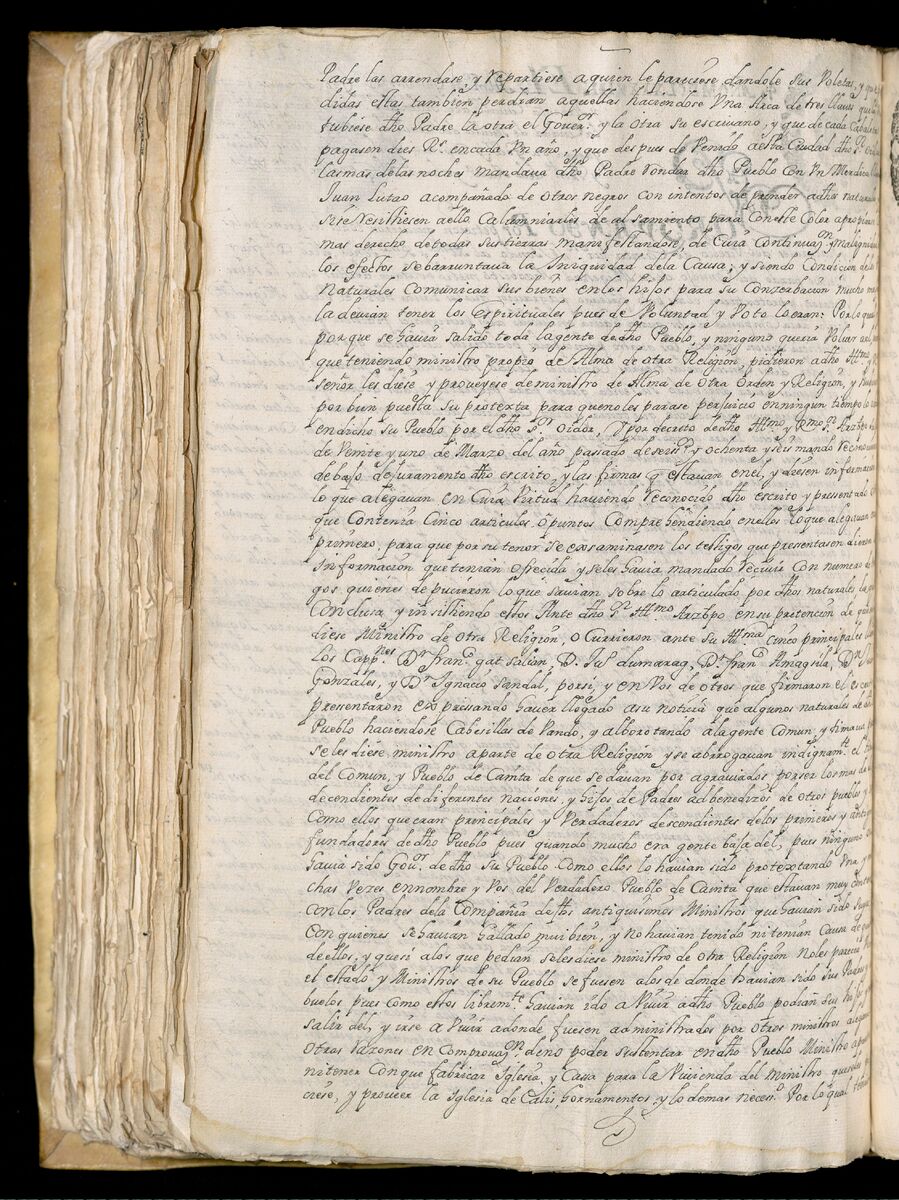 Padre las arrendase, y repartiese a quien le pareciese dandole sus Voletas, y
didas estas tambien perdian aquellas haciendose Vna Arca de tres llaves que la
tubiese dho Padre la otra el Gover.or y la otra su escrivano, y que de cada Cabal
pagasen dies R.s en cada Vn año, y que despues de Venido a esta Ciudad dho P.e
las mas de las noches mandava dho Padre rondar dho Pueblo con Vn
Juan Lutao acompañado de otros negros con intentos de prender a dhos natura
si se resistiesen a ello Calumniarles de alsamiento para Con este Color apropiar
mas derecho de todas sus tierras manifestandose, de Cuia Continuaz.on
los efectos se barruntava la Iniquidad de la Causa, y siendo Condicion de los
naturales Comunicar sus bienes en los hijos para su Conserbacion mucho mas
la devian tener los Espirituales pues de Voluntad y Voto lo eran: Por lo qual
porque se havia salido toda la gente de dho Pueblo, y ninguno queria Volver
que teniendo ministro propio de Alma de otra Religion, pidieron a dho Ill.mo
señor les diese y proveyese de ministro de Alma de Otra Orden y Religion, y
por bien puesta su protexta para que no les parase perjuicio en ningun tiempo lo
en dicho su Pueblo por el dho S.or Oidor, Y por decreto de dho Ill.mo y R.mo S.r Arzpo
de Veinte y uno de Marzo del año pasado de seis.os y ochenta y seis mando
debajo de juramento dho escrito, y las firmas q estavan en el, y diesen informacion
lo que alegavan en Cuia Virtud haviendo reconocido dho escrito y presentado
que Contenia Cinco articulos, o puntos Comprehendiendo en ellos lo que alegavan
primero, para que por su tenor se exsaminasen los testigos que presentasen dieron
Informacion que tenian ofrecida y se les havia mandado recivir Con numero de
gos quienes depucieron lo que savian sobre lo articulado por dhos naturales
Conclusa y insistiendo estos Ante dho S.r Ill.mo Arzbpo en su pretencion de
diese Ministro de otra Religion, o Currieron ante su Ill.ma Cinco principales
los Capp.nes D.n fran.co gat salian, D. Ju.o dumarag, D.n fran.co Amagsila, D.n
Gonzales, y D.n Ignacio Sandal, por si, y en Vos de otros que firmaron el
presentaron expressando haver llegado a su noticia que algunos naturales de
Pueblo haciendose Cabesillas de Vando, y alborotando a la gente Comun,
se les diese ministro aparte de otra Religion y se abrrogavan indignam.te el
del Comun, y Pueblo de Cainta de que se davan por agraviados por ser los mas de
decendientes de diferentes naciones, y hijos de Padres adbenedizos de otros pueblos y
Como ellos que eran principales y Verdaderos descendientes de los primeros y
fundadores de dho Pueblo pues quando mucho era gente baja del, pues ninguno
havia sido Gov.or de dho su Pueblo Como ellos lo havian sido protextando Vna y
chas Vezes en nombre y Vos del Verdadero Pueblo de Cainta que estavan muy
con los Padres de la Compañia de Jhs antiquisimos Ministros que havian sido
Con quienes se havian hallado mui bien, y no havian tenido ni tenian Causa de
de ellos, y que si a los que pedian se les diese ministro de otra Religion no les parecia
el estado y Ministros de su Pueblo se fuesen a los de donde havian sido sus Padres
buelos pues como estos librem.te havian ido a Vivir a dho Pueblo podian sus hijos
salir del, y irse a Vivir a donde fuesen administrados por otros ministros
otras razones en Comprovaz.on de no poder sustentar en dho Pueblo Ministro
ni tener Con que fabricar Iglesia y Cassa para la Vivienda del ministro que
ciese, y proveer la Iglesia de Calis, hornamentos, y lo demas neces.o Por lo qual